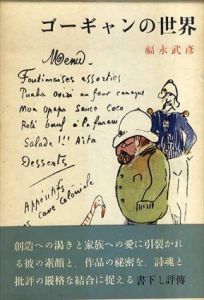 ゴーギャンの世界
福永武彦
Menu.
Foutimaises assorties
Punha Ovizi au four canaque
Mon opapa Sauce Coco
Roti bœuf à la
Salade !!! Aita
Desserts
Appéritifs
cave Coloniale
創造への渇きと家族への愛に引裂かれ
る彼の素顔と、作品の秘密を、詩魂と
批評の厳格な結合に捉える書下し評傳